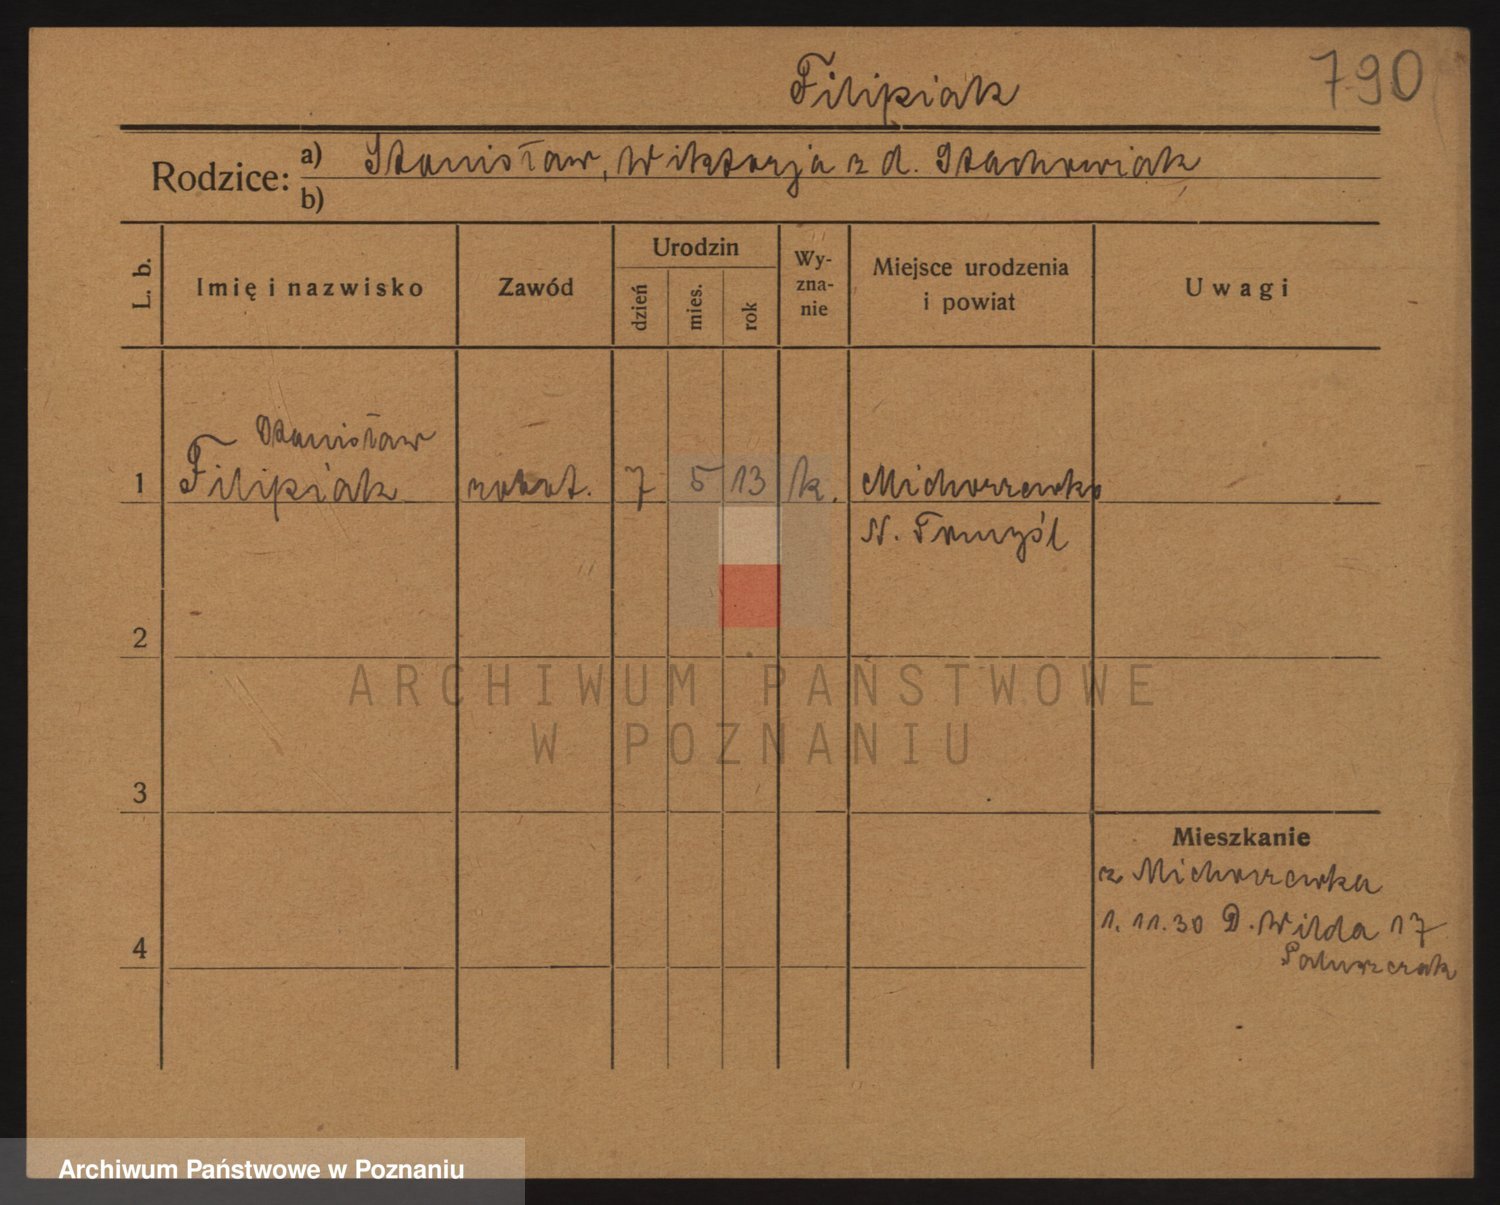 Filipiak
790
Rodzice:
a) Stanisław, Wiktorja z d. Stachowiak
b)
L. b.
Imię i nazwisko
Zawód
Urodzin
dzień
mies.
rok
Wy-
zna-
nie
Miejsce urodzenia
i powiat
Uwagi
Stanisław
1 Filipiak robot. 7 5 13 k. Michorzewko
N. Tomyśl
2
ARCHIWUM PAŃSTWOWE
W POZNANIU
3
Mieszkanie
z Michorzewka
1. 11. 30 D. Wilda 17
4
Archiwum Państwowe w Poznaniu